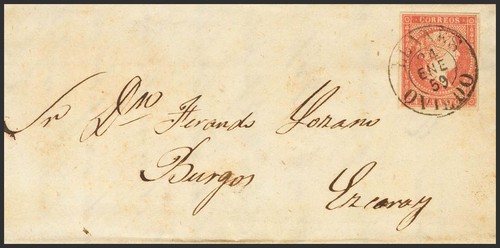 CORREOS
24
ENE
59
OVIEDO
Sr Dn Fernando Lozano
Burgos Ezcaray